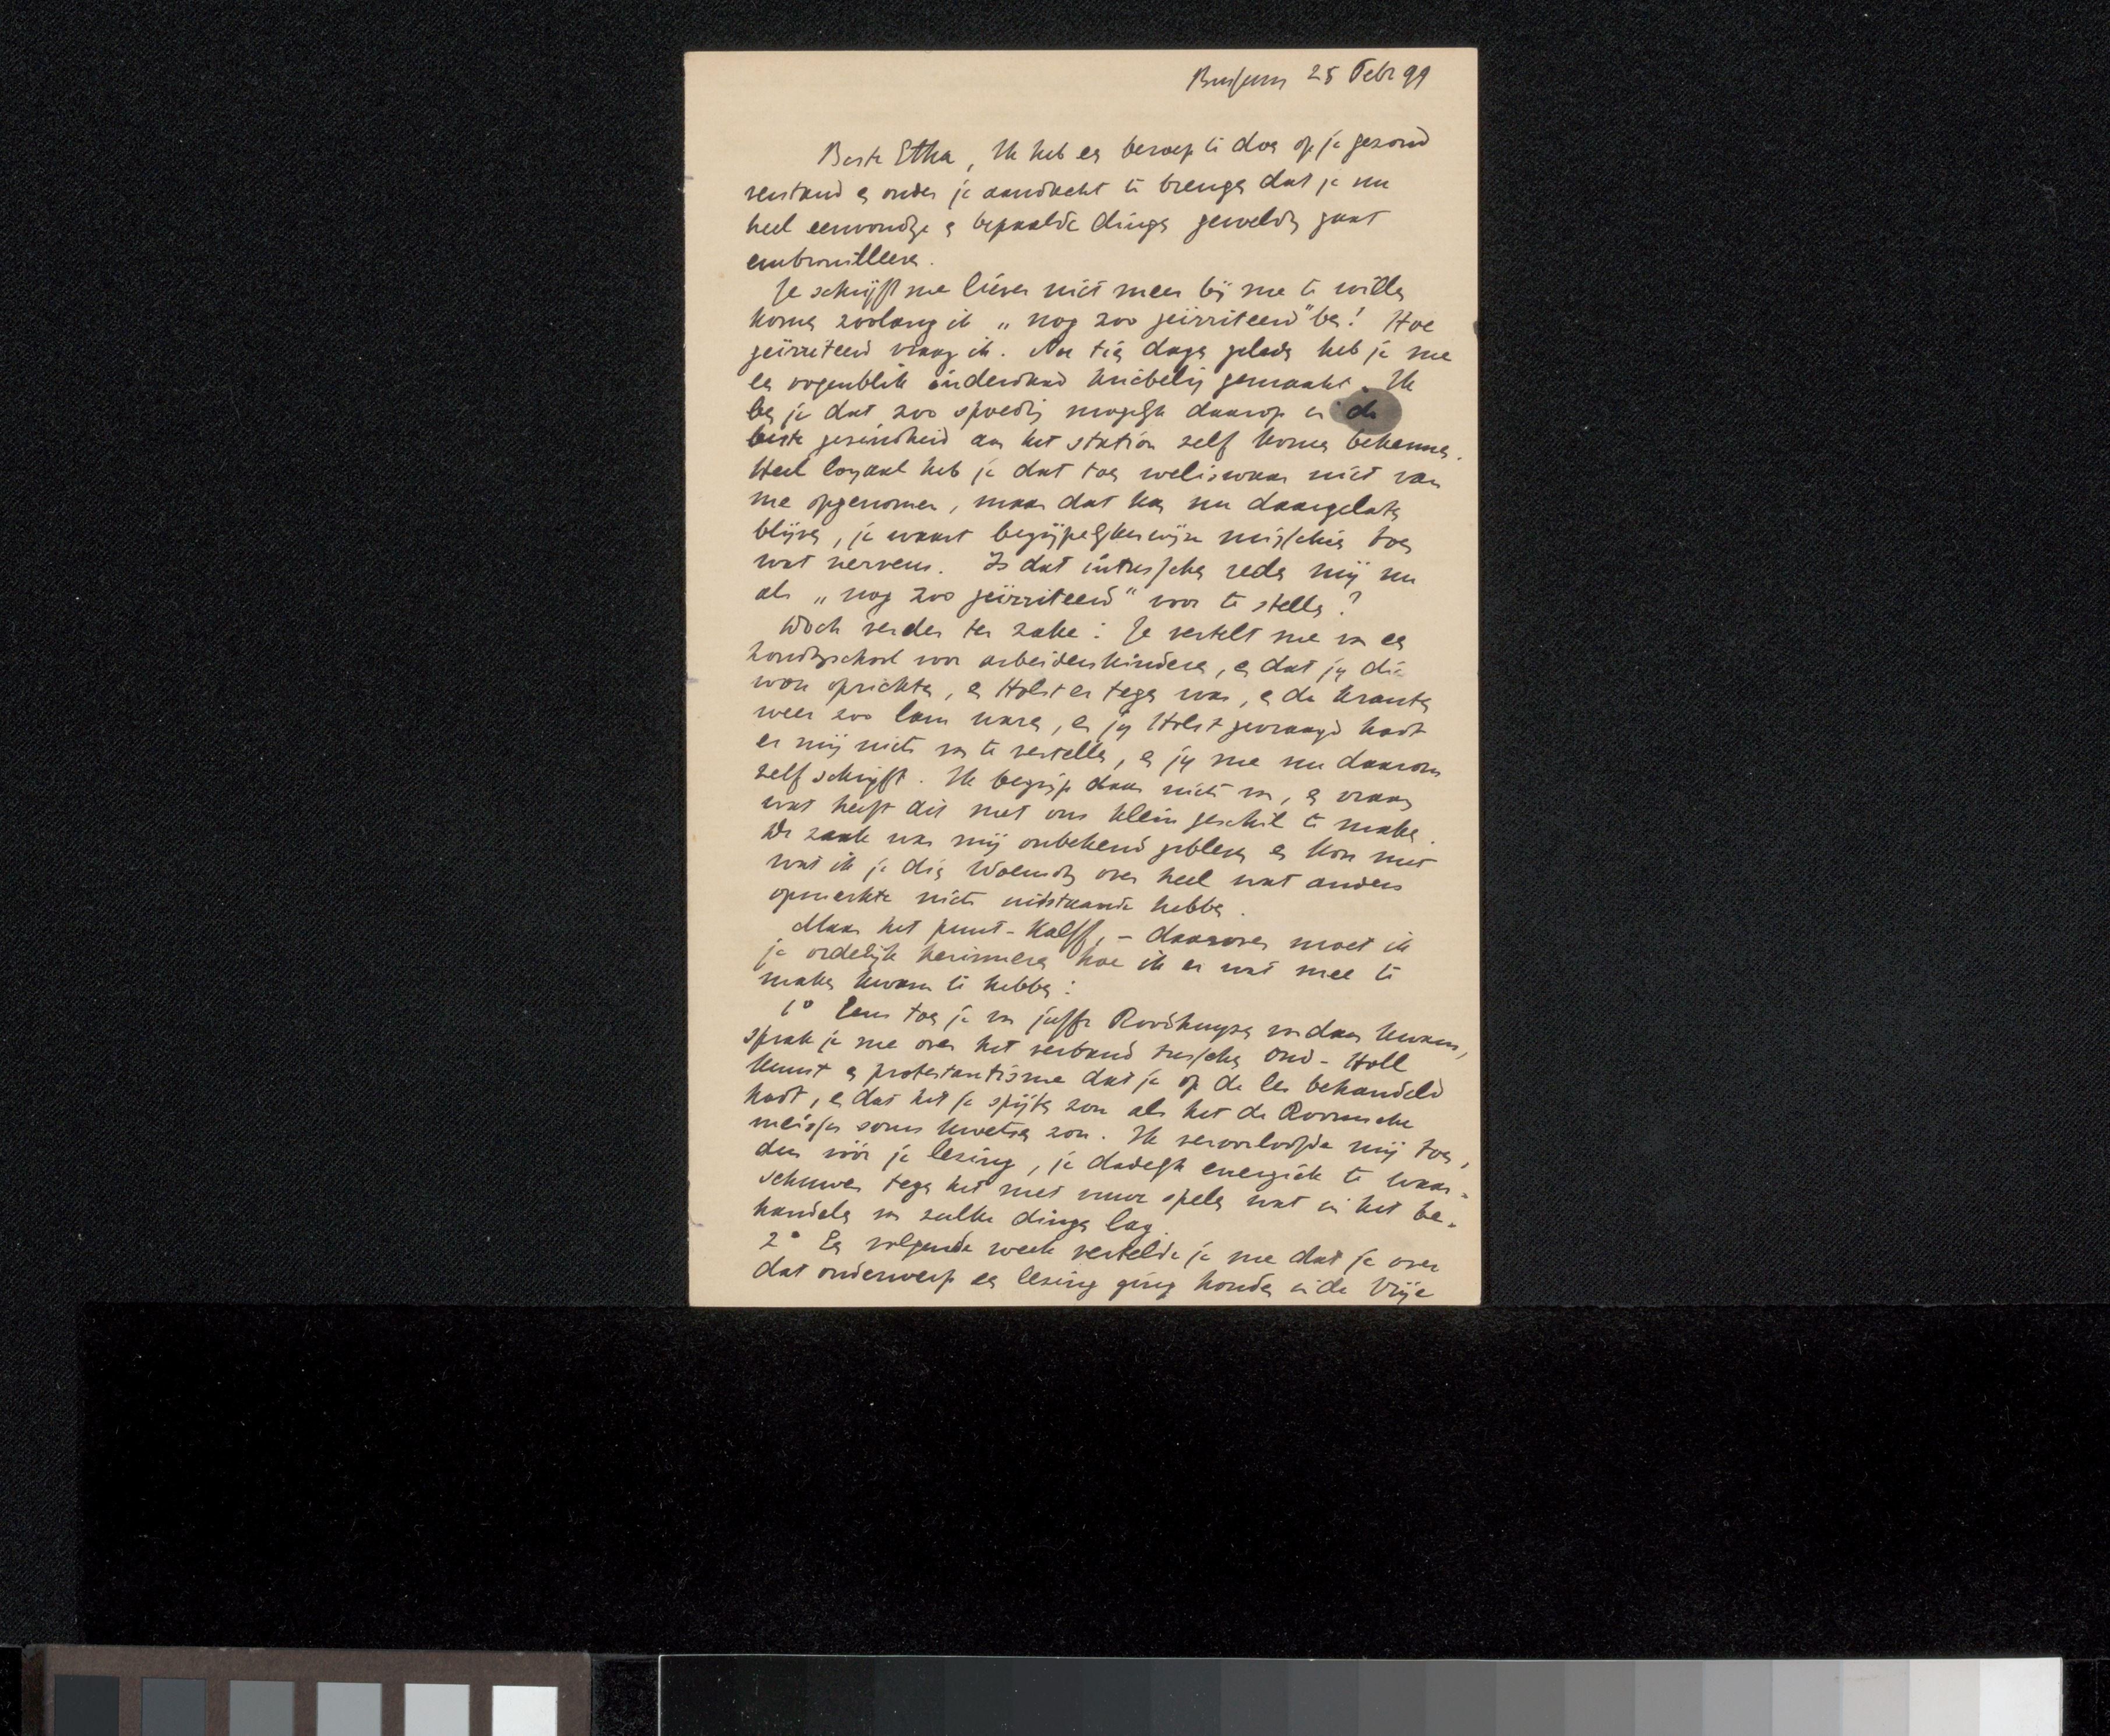 Bussum 25 Febr 99
Beste Etha, Ik heb een beroep te doen op je gezond
verstand en onder je aandacht te brengen dat je nu
heel eenvoudige en bepaalde dingen geweldig gaat
embrouilleeren.
Je schrijft me liever niet meer bij me te willen
komen zoolang ik „nog zoo geïrriteerd" ben! Hoe
geïrriteerd vraag ik. Nu tien dagen geleden heb je me
een oogenblik inderdaad kribbelig gemaakt. Ik
ben je dat zoo spoedig mogelijk daarop in de
beste gezindheid aan het station zelf komen bekennen.
Heel loyaal heb je dat toen weliswaar niet van
me opgenomen, maar dat kan nu daargelaten
blijven, je waart begrijpelijkerwijze misschien toen
wat nerveus. Is dat intusschen reden mij nu
als „nog zoo geïrriteerd" voor te stellen?
Doch verder ter zake: Je vertelt me van een
Zondagschool voor arbeiderskinderen, en dat jij die
wou oprichten, en Holst er tegen was, en de kranten
weer zoo lam waren, en jij Holst gevraagd hadt
er mij niets van te vertellen, en jij me nu daarom
zelf schrijft. Ik begrijp daar niets van, en vraag
wat heeft dit met ons klein geschil te maken.
De zaak was mij onbekend gebleven en kon met
wat ik je dien Woensdag over heel wat anders
opmerkte niets uitstaande hebben.
Maar het punt-Kalff, – daarover moet ik
je ordelijk herinneren hoe ik er wat mee te
maken kwam te hebben:
1° Eens toen je van juffr Roodhuyzen vandaan kwam,
sprak je me over het verband tusschen Oud-Holl
kunst en protestantisme dat je op de les behandeld
hadt, en dat het je spijten zou als het de Roomsche
meisjes soms kwetsen zou. Ik veroorloofde mij toen,
dus vóór je lezing, je dadelijk energiek te waar-
schuwen tegen het met vuur spelen wat in het be-
handelen van zulke dingen lag.
2° Een volgende week vertelde je me dat je over
dat onderwerp een lezing ging houden in de Vrije